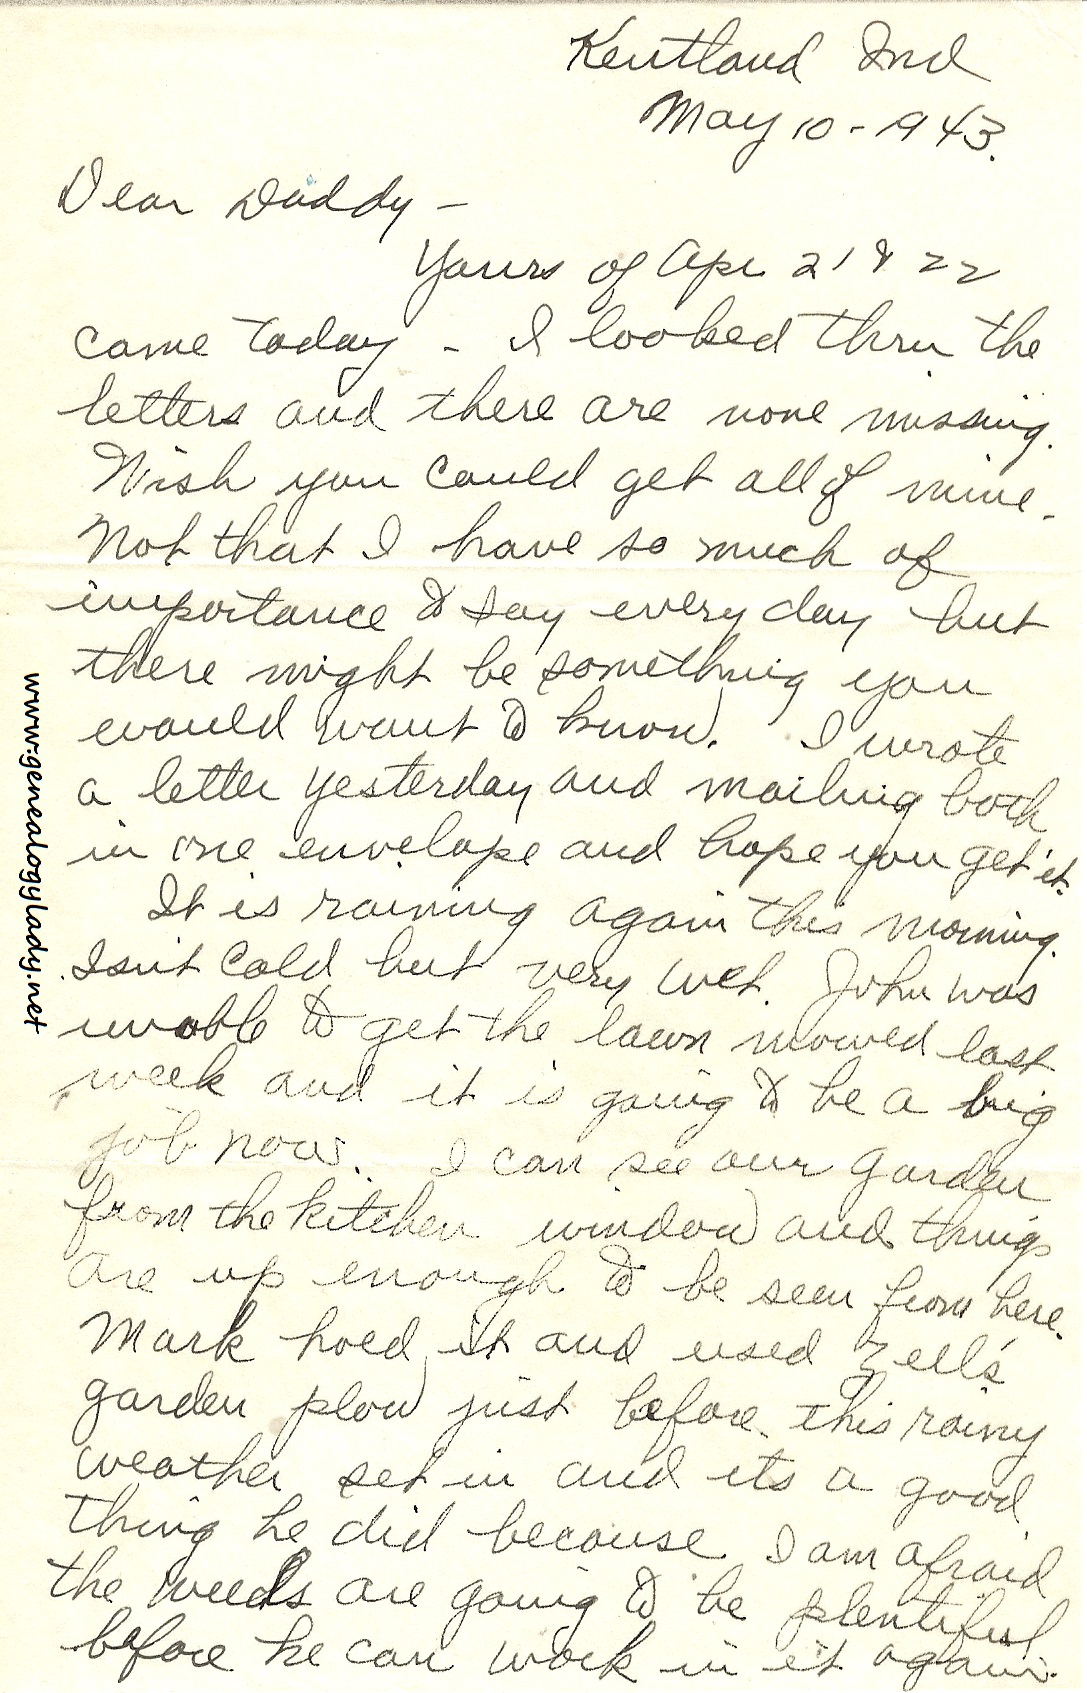 Kentland Ind
May 10 - 1943.
Dear Daddy -
Yours of Apr 21 & 22
came today - I looked thru the
letters and there are none missing.
Wish you could get all of mine.
Not that I have so much of
importance to say every day but
there might be something you
would want to know. I wrote
a letter yesterday and mailing both
in one envelope and hope you get it.
It is raining again this morning.
Isn't cold but very wet. John was
unable to get the lawn mowed last
week and it is going to be a big
job now. I can see our garden
from the kitchen window and things
are up enough to be seen from here.
Mark hoed it and used Zell's
garden plow just before this rainy
weather set in and its a good
thing he did because I am afraid
the weeds are going to be plentiful
before he can work in it again.
www.genealogylady.net